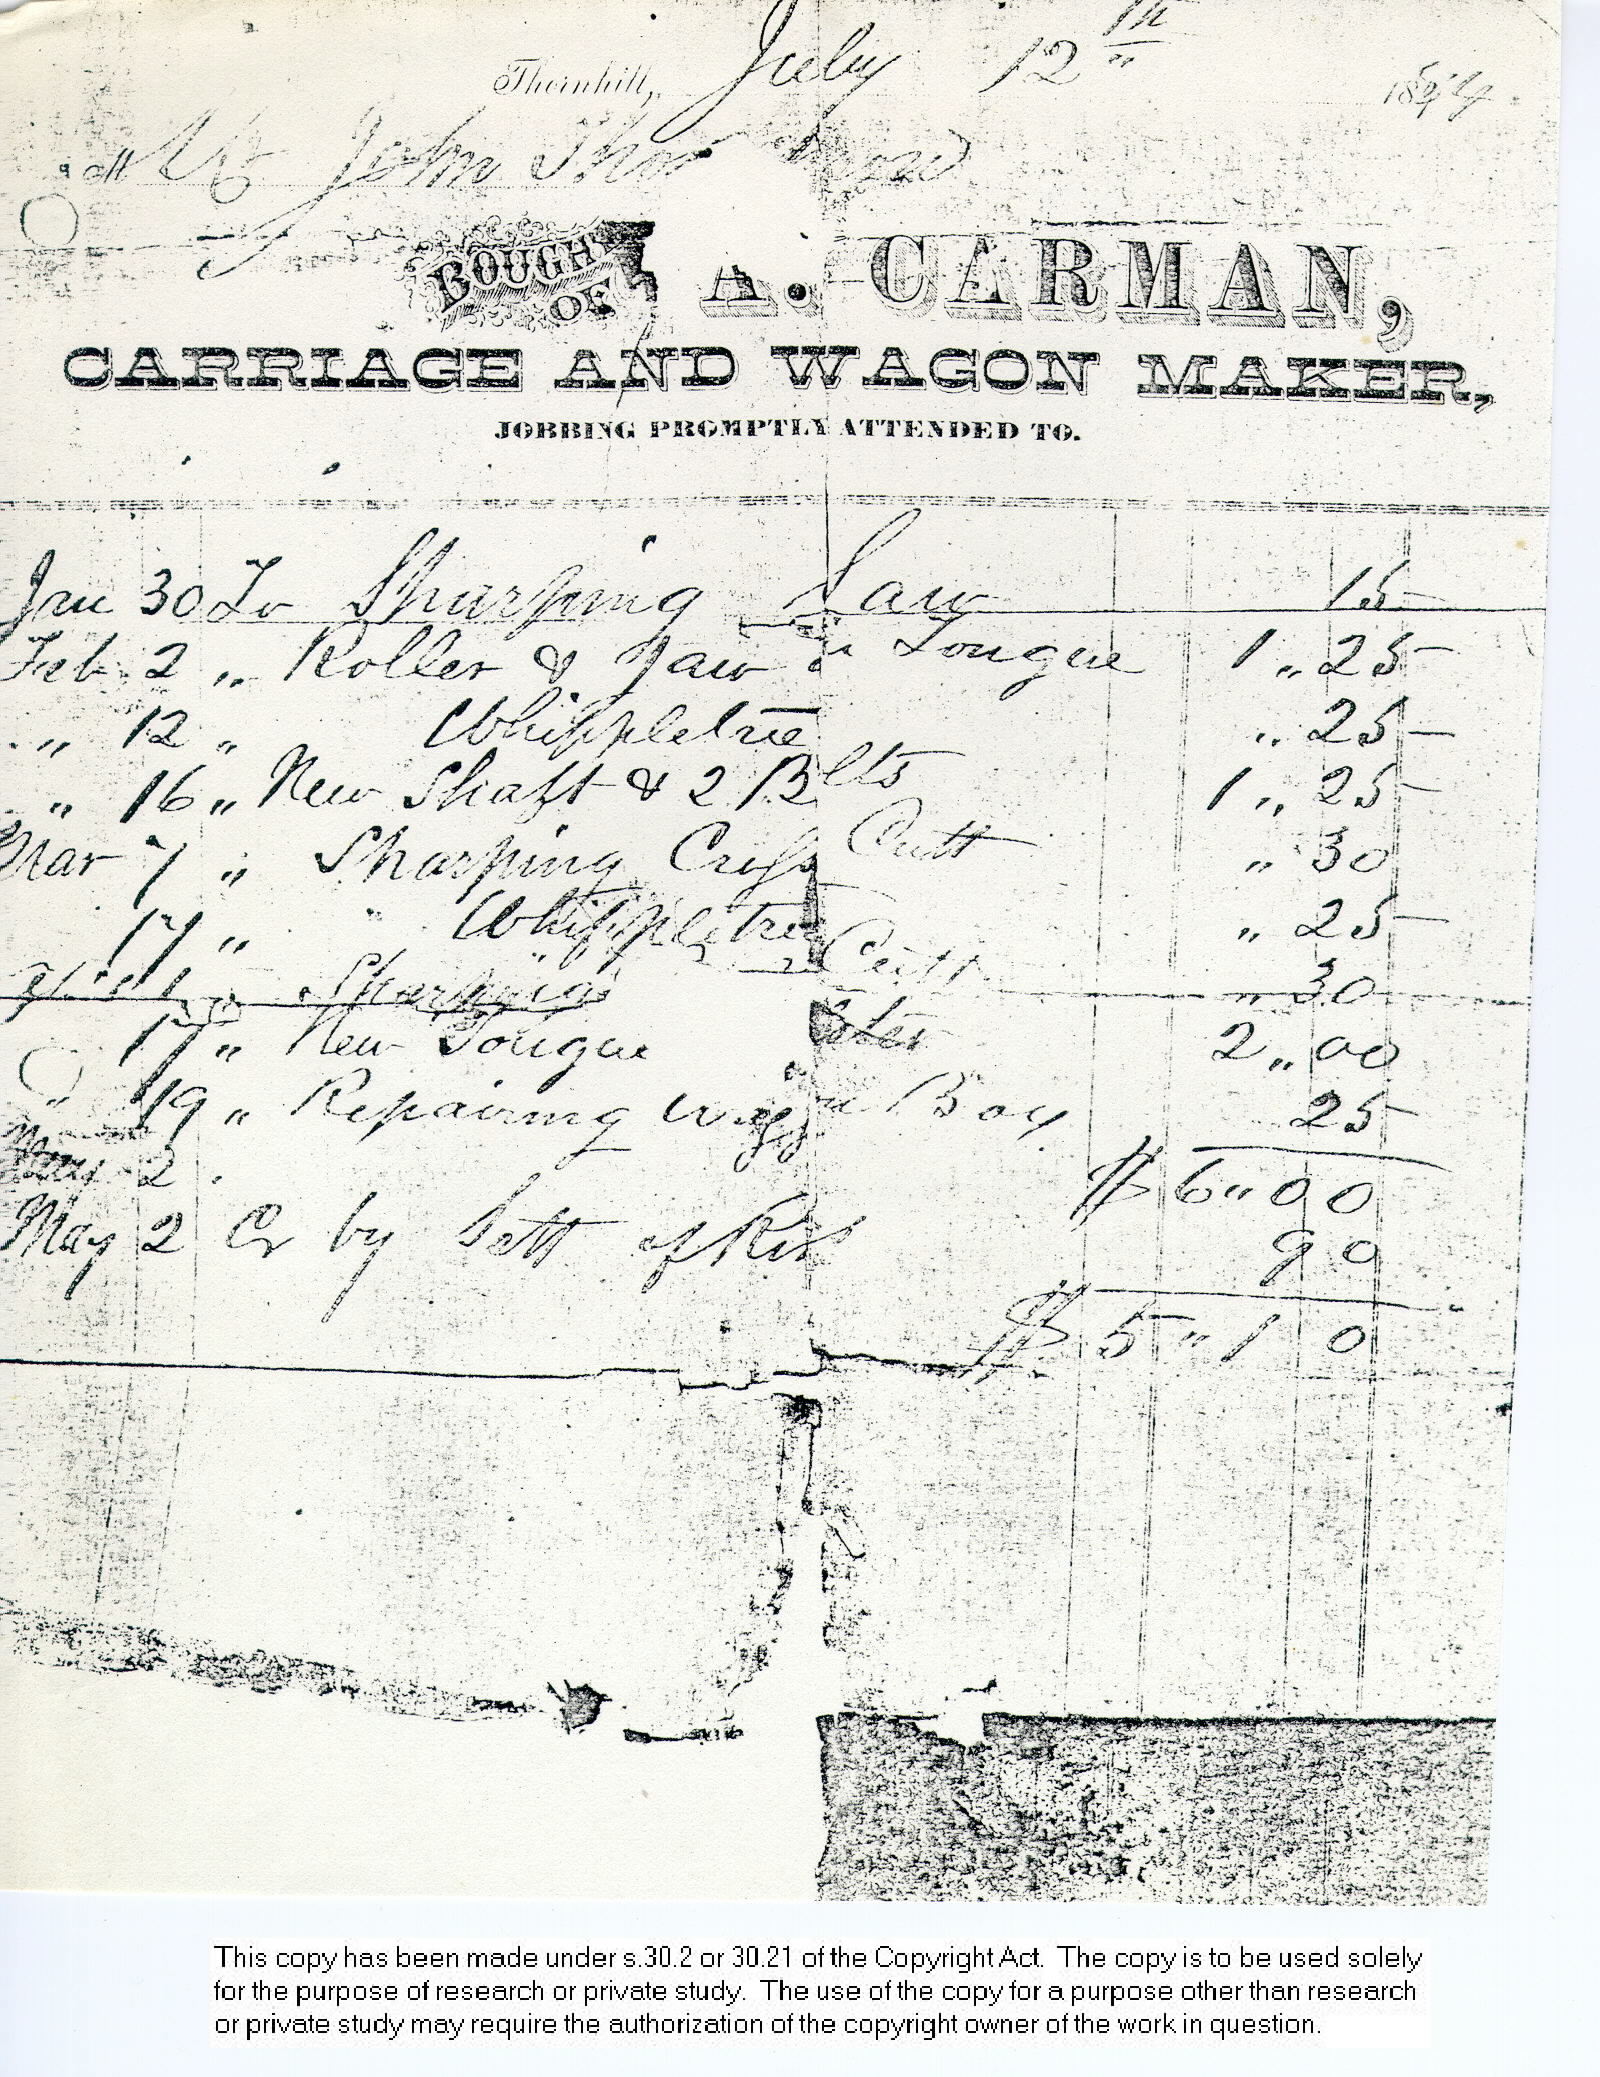 Thornhill, July 12th 18
M John
BOUGHT OF A. CARMAN,
CARRIAGE AND WAGON MAKER,
JOBBING PROMPTLY ATTENDED TO.
Jan 30 To Sharping Saw 15
Feb 2 „ Roller & Jaw Tongue 1 „ 25
„ 12 „ Whippletree „ 25
„ 16 „ New Shaft & 2 Blts 1 „ 25
Mar 7 „ Sharping Cross Cutt „ 30
17 „ „ Whippletree „ 25
Sharping Cutt „ 30
17 „ New Tongue 2 „ 00
„ 19 „ Repairing Box 25
May 2 $ 6 „ 00
May 2 Cr by Sett of 90
$ 5 „ 10
This copy has been made under s.30.2 or 30.21 of the Copyright Act. The copy is to be used solely
for the purpose of research or private study. The use of the copy for a purpose other than research
or private study may require the authorization of the copyright owner of the work in question.